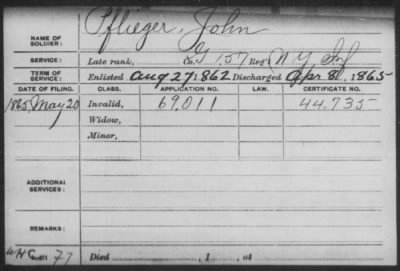 NAME OF SOLDIER: Pflieger, John
SERVICE: Late rank, Co. G, 157 Reg't N.Y. Inf
TERM OF SERVICE: Enlisted Aug 27, 1862 Discharged Apr. 8, 1865
DATE OF FILING. CLASS. APPLICATION NO. LAW. CERTIFICATE NO.
1865, May 20 Invalid, 69,011 44,735
Widow,
Minor,
ADDITIONAL SERVICES:
REMARKS:
77 Died , 1 , at